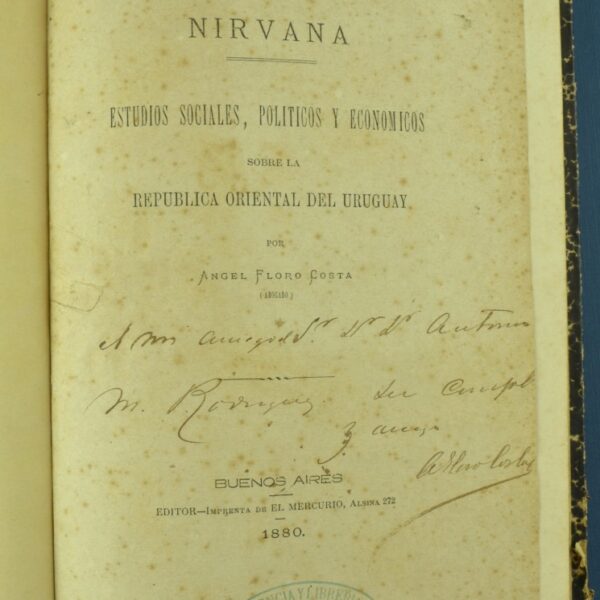 NIRVANA
ESTUDIOS SOCIALES, POLITICOS Y ECONOMICOS
SOBRE LA
REPUBLICA ORIENTAL DEL URUGUAY
POR
ANGEL FLORO COSTA
(ABOGADO)
A mi amigo el Sr. Dr. Dn. Antonio
M. Rodriguez su
y amigo
A Floro Costa
BUENOS AIRES
EDITOR—IMPRENTA DE EL MERCURIO, ALSINA 272
1880.